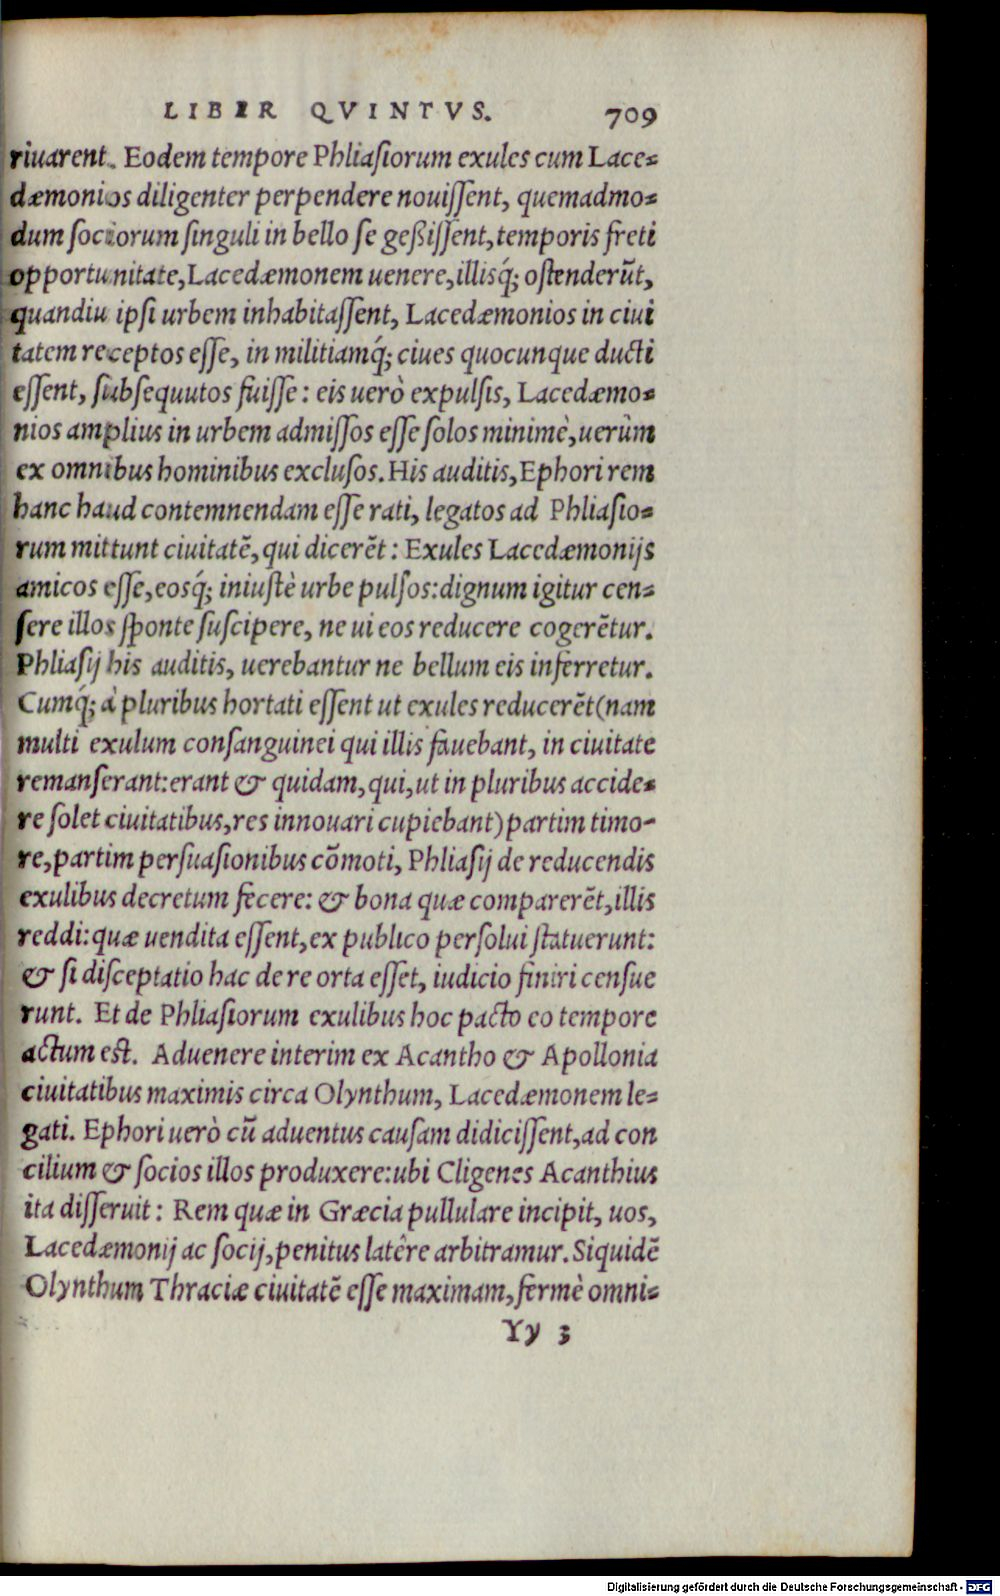 LIBER QVINTVS. 709
riuarent. Eodem tempore Phliasiorum exules cum Lace-
dæmonios diligenter perpendere nouissent, quemadmo-
dum sociorum singuli in bello se geßissent, temporis freti
opportunitate, Lacedæmonem uenere, illisq́; ostenderũt,
quandiu ipsi urbem inhabitassent, Lacedæmonios in ciui
tatem receptos esse, in militiamq́; ciues quocunque ducti
essent, subsequutos fuisse: eis uerò expulsis, Lacedæmo-
nios amplius in urbem admissos esse solos minimè, uerùm
ex omnibus hominibus exclusos. His auditis, Ephori rem
hanc haud contemnendam esse rati, legatos ad Phliasio-
rum mittunt ciuitatẽ, qui dicerẽt: Exules Lacedæmonijs
amicos esse, eosq́; iniustè urbe pulsos: dignum igitur cen-
sere illos sponte suscipere, ne ui eos reducere cogerẽtur.
Phliasij his auditis, uerebantur ne bellum eis inferretur.
Cumq́; à pluribus hortati essent ut exules reducerẽt (nam
multi exulum consanguinei qui illis fauebant, in ciuitate
remanserant: erant & quidam, qui, ut in pluribus accide-
re solet ciuitatibus, res innouari cupiebant) partim timo-
re, partim persuasionibus cõmoti, Phliasij de reducendis
exulibus decretum fecere: & bona quæ comparerẽt, illis
reddi: quæ uendita essent, ex publico persolui statuerunt:
& si disceptatio hac de re orta esset, iudicio finiri censue
runt. Et de Phliasiorum exulibus hoc pacto eo tempore
actum est. Aduenere interim ex Acantho & Apollonia
ciuitatibus maximis circa Olynthum, Lacedæmonem le-
gati. Ephori uerò cũ aduentus causam didicissent, ad con
cilium & socios illos produxere: ubi Cligenes Acanthius
ita disseruit: Rem quæ in Græcia pullulare incipit, uos,
Lacedæmonij ac socij, penitus latêre arbitramur. Siquidẽ
Olynthum Thraciæ ciuitatẽ esse maximam, fermè omni-
Yy 3
Digitalisierung gefördert durch die Deutsche Forschungsgemeinschaft - DFG